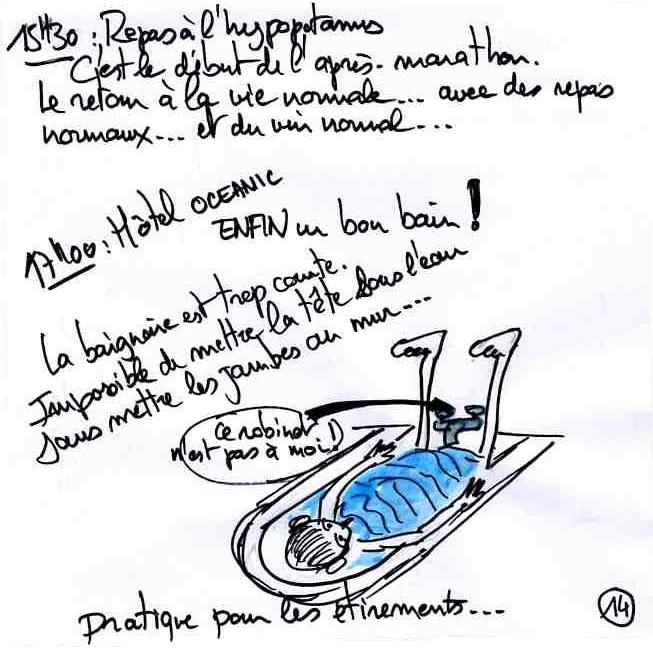 15H30 : Repas à l'hyppopotamus
C'est le début de l'après-marathon.
Le retour à la vie normale... avec des repas
normaux... et du vin normal...
17H00 : Hôtel OCEANIC
ENFIN un bon bain !
La baignoire est trop courte.
Impossible de mettre la tête sous l'eau
sans mettre les jambes au mur...
Ce robinet
n'est pas à moi !
Pratique pour les étirements...
14